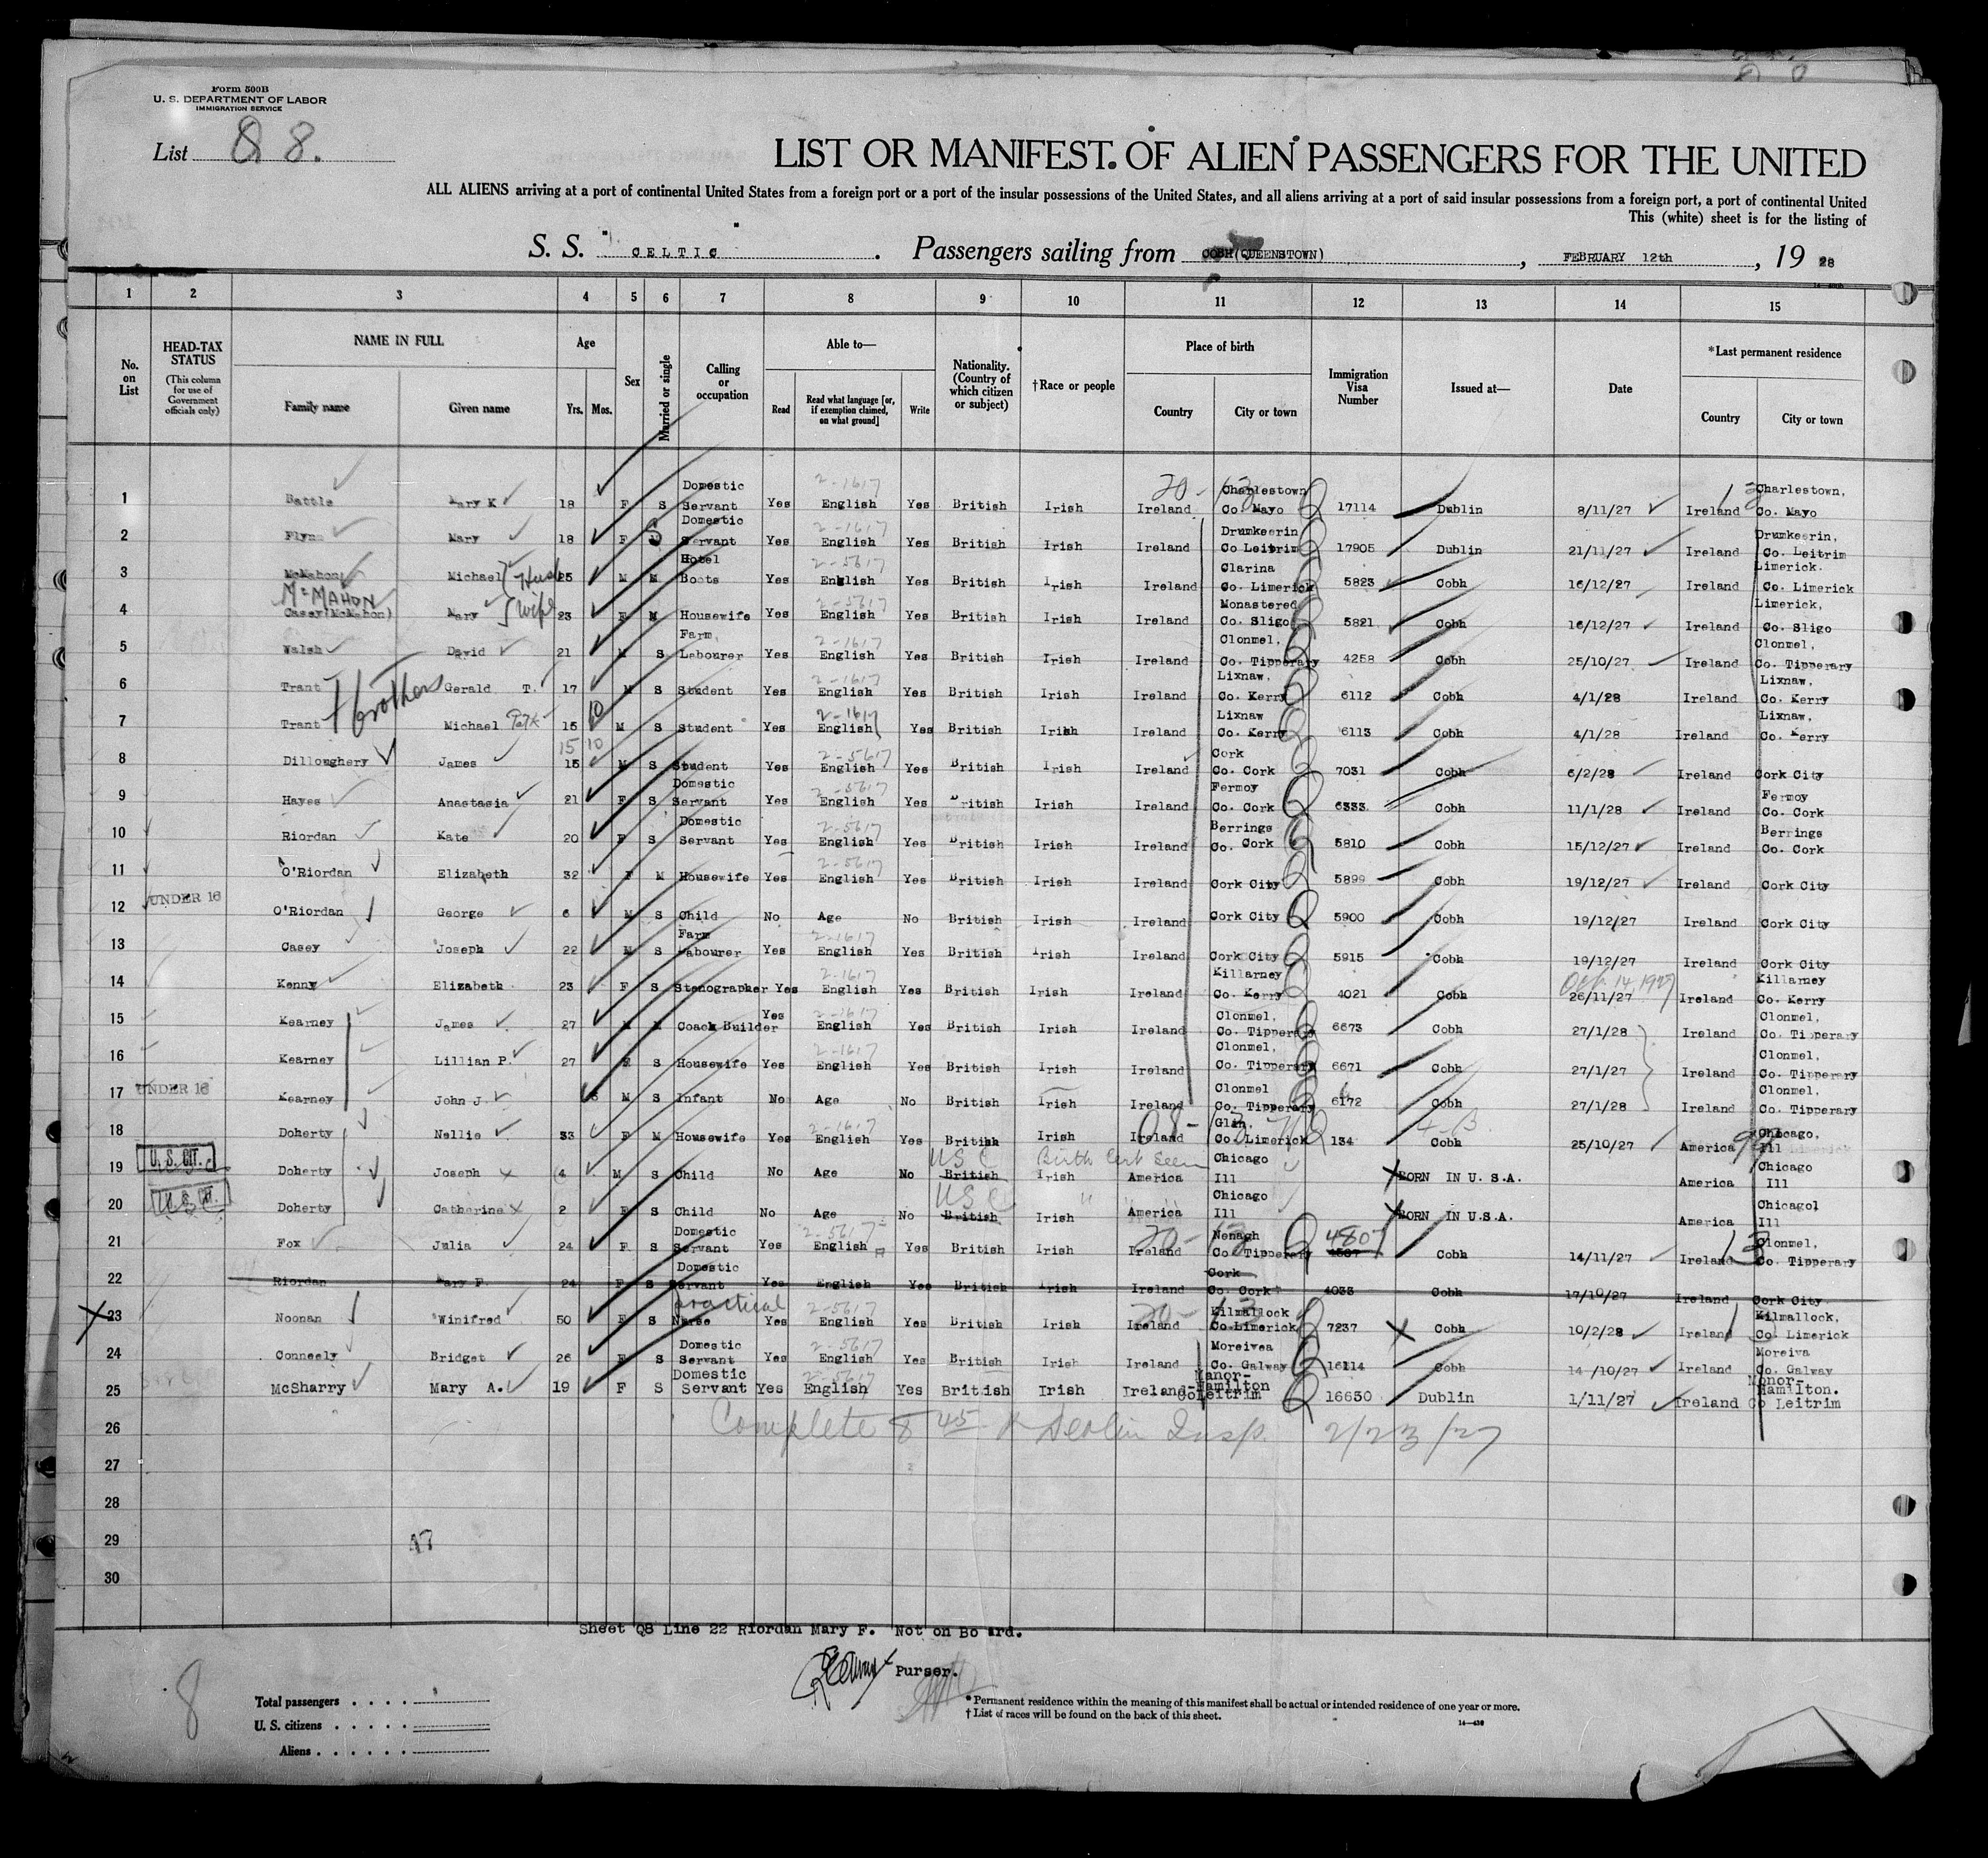 Form 500B
U. S. DEPARTMENT OF LABOR
IMMIGRATION SERVICE
List Q 8.
LIST OR MANIFEST OF ALIEN PASSENGERS FOR THE UNITED
ALL ALIENS arriving at a port of continental United States from a foreign port or a port of the insular possessions of the United States, and all aliens arriving at a port of said insular possessions from a foreign port, a port of continental United
This (white) sheet is for the listing of
S. S. CELTIC . Passengers sailing from COBH (QUEENSTOWN) , FEBRUARY 12th , 19 28
1 2 3 4 5 6 7 8 9 10 11 12 13 14 15
No. on List
HEAD-TAX STATUS
(This column for use of Government officials only)
NAME IN FULL
Family name Given name
Age
Yrs. Mos.
Sex
Married or single
Calling or occupation
Able to—
Read
Read what language [or, if exemption claimed, on what ground]
Write
Nationality. (Country of which citizen or subject)
†Race or people
Place of birth
Country City or town
Immigration Visa Number
Issued at—
Date
*Last permanent residence
Country City or town
1 Battle Mary K 18 F S Domestic Servant Yes English 2-1617 Yes British Irish Ireland Charlestown Co. Mayo 17114 Dublin 8/11/27 Ireland Charlestown, Co. Mayo
2 Flynn Mary 18 F S Domestic Servant Yes English 2-1617 Yes British Irish Ireland Drumkeerin Co Leitrim 17905 Dublin 21/11/27 Ireland Drumkeerin, Co. Leitrim
3 McMahon Michael Husb 25 M M Hotel Boots Yes English 2-5617 Yes British Irish Ireland Clarina Co. Limerick 5823 Cobh 16/12/27 Ireland Limerick. Co. Limerick
McMAHON
4 Casey (McMahon) Mary Wife 23 F M Housewife Yes English 2-5617 Yes British Irish Ireland Monastered Co. Sligo 5821 Cobh 16/12/27 Ireland Limerick, Co. Sligo
5 Walsh David 21 M S Farm Labourer Yes English 2-1617 Yes British Irish Ireland Clonmel, Co. Tipperary 4258 Cobh 25/10/27 Ireland Clonmel, Co. Tipperary
6 Trant brothers Gerald T. 17 M S Student Yes English 2-1617 Yes British Irish Ireland Lixnaw, Co. Kerry 6112 Cobh 4/1/28 Ireland Lixnaw, Co. Kerry
7 Trant Michael Patk 15 10 M S Student Yes English 2-1617 Yes British Irish Ireland Lixnaw Co. Kerry 6113 Cobh 4/1/28 Ireland Lixnaw, Co. Kerry
15 10
8 Dilloughery James 15 M S Student Yes English 2-5617 Yes British Irish Ireland Cork Co. Cork 7031 Cobh 6/2/28 Ireland Cork City
9 Hayes Anastasia 21 F S Domestic Servant Yes English 2-5617 Yes British Irish Ireland Fermoy Co. Cork 6333 Cobh 11/1/28 Ireland Fermoy Co. Cork
10 Riordan Kate 20 F S Domestic Servant Yes English 2-5617 Yes British Irish Ireland Berrings Co. Cork 5810 Cobh 15/12/27 Ireland Berrings Co. Cork
11 O'Riordan Elizabeth 32 F M Housewife Yes English 2-5617 Yes British Irish Ireland Cork City 5899 Cobh 19/12/27 Ireland Cork City
12 UNDER 16 O'Riordan George 6 M S Child No Age No British Irish Ireland Cork City 5900 Cobh 19/12/27 Ireland Cork City
13 Casey Joseph 22 M S Farm Labourer Yes English 2-1617 Yes British Irish Ireland Cork City 5915 Cobh 19/12/27 Ireland Cork City
14 Kenny Elizabeth 23 F S Stenographer Yes English 2-1617 Yes British Irish Ireland Killarney Co. Kerry 4021 Cobh 26/11/27 Oct. 14, 1927 Ireland Killarney Co. Kerry
15 Kearney James 27 M M Coach Builder Yes English 2-1617 Yes British Irish Ireland Clonmel, Co. Tipperary 6673 Cobh 27/1/28 Ireland Clonmel, Co. Tipperary
16 Kearney Lillian P. 27 F S Housewife Yes English 2-1617 Yes British Irish Ireland Clonmel, Co. Tipperary 6671 Cobh 27/1/27 Ireland Clonmel, Co. Tipperary
17 UNDER 16 Kearney John J. 6 M S Infant No Age No British Irish Ireland Clonmel Co. Tipperary 6172 Cobh 27/1/28 Ireland Clonmel, Co. Tipperary
18 Doherty Nellie 33 F M Housewife Yes English 2-1617 Yes British Irish Ireland Glin, Co. Limerick 134 Cobh 25/10/27 America Chicago, Ill
19 U.S. CIT. Doherty Joseph 4 M S Child No Age No British USC Irish Birth Cert Seen America Chicago Ill BORN IN U. S.A. America Chicago Ill
20 U.S. CIT. Doherty Catherine 2 F S Child No Age No British USC Irish " America Chicago Ill BORN IN U.S.A. America Chicago Ill
21 Fox Julia 24 F S Domestic Servant Yes English 2-5617 Yes British Irish Ireland Nenagh Co Tipperary 4807 Cobh 14/11/27 Ireland Clonmel, Co. Tipperary
22 Riordan Mary F. 24 F S Domestic Servant Yes English Yes British Irish Ireland Cork Co. Cork 4033 Cobh 17/10/27 Ireland Cork City
23 Noonan Winifred 50 F S practical Nurse Yes English 2-5617 Yes British Irish Ireland Kilmallock Co Limerick 7237 Cobh 10/2/28 Ireland Kilmallock, Co. Limerick
24 Conneely Bridget 26 F S Domestic Servant Yes English 2-5617 Yes British Irish Ireland Moreivea Co. Galway 16114 Cobh 14/10/27 Ireland Moreiva Co. Galway
25 McSharry Mary A. 19 F S Domestic Servant Yes English 2-5617 Yes British Irish Ireland Manor-Hamilton Co Leitrim 16650 Dublin 1/11/27 Ireland Monor-Hamilton. Co Leitrim
26 Complete 8 45 Insp. 2/23/27
27
28
29 17
30
Sheet Q8 Line 22 Riordan Mary F. Not on Board.
Purser.
8
Total passengers . . . .
U. S. citizens . . . . .
Aliens . . . . . .
* Permanent residence within the meaning of this manifest shall be actual or intended residence of one year or more.
† List of races will be found on the back of this sheet.
14—430